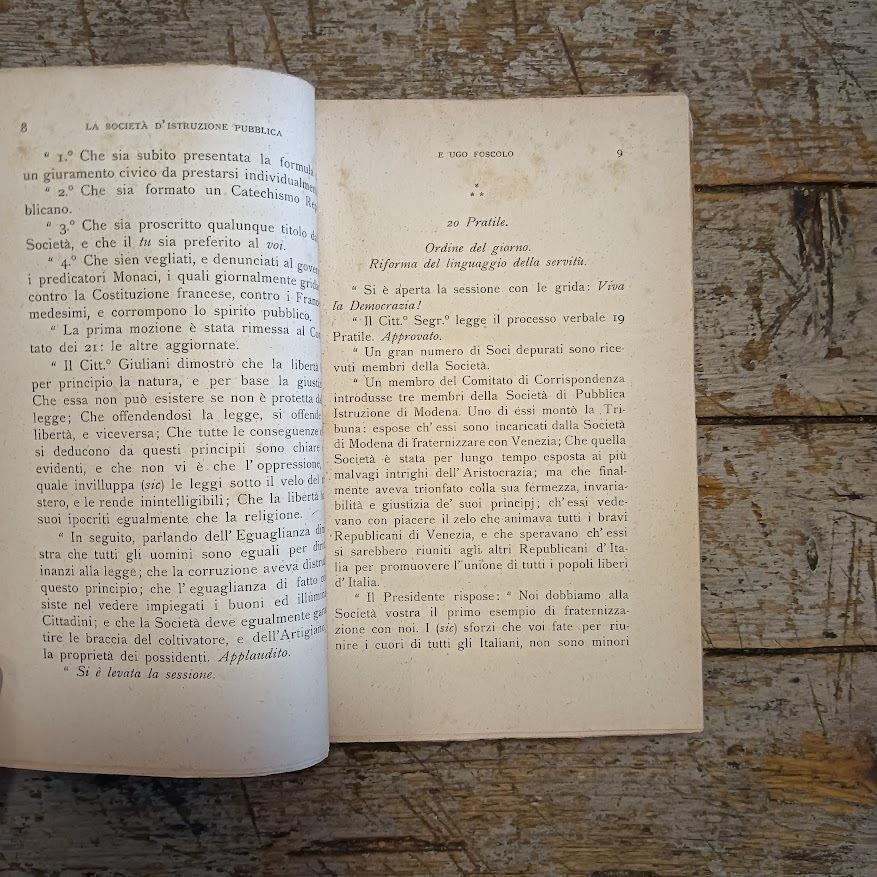 8 LA SOCIETÀ D'ISTRUZIONE PUBBLICA
“ 1.º Che sia subito presentata la formula
un giuramento civico da prestarsi individualmen
“ 2.º Che sia formato un Catechismo Rep
blicano.
“ 3.º Che sia proscritto qualunque titolo da
Società, e che il tu sia preferito al voi.
“ 4.º Che sien vegliati, e denunciati al gover
i predicatori Monaci, i quali giornalmente grida
contro la Costituzione francese, contro i Franc
medesimi, e corrompono lo spirito pubblico.
“ La prima mozione è stata rimessa al Com
tato dei 21: le altre aggiornate.
“ Il Citt.º Giuliani dimostrò che la libertà
per principio la natura, e per base la giusti
Che essa non può esistere se non è protetta da
legge; Che offendendosi la legge, si offende
libertà, e viceversa; Che tutte le conseguenze c
si deducono da questi principii sono chiare
evidenti, e che non vi è che l'oppressione,
quale invilluppa (sic) le leggi sotto il velo del m
stero, e le rende inintelligibili; Che la libertà h
suoi ipocriti egualmente che la religione.
“ In seguito, parlando dell'Eguaglianza dim
stra che tutti gli uomini sono eguali per diri
inanzi alla legge; che la corruzione aveva distru
questo principio; che l'eguaglianza di fatto co
siste nel vedere impiegati i buoni ed illumina
Cittadini; e che la Società deve egualmente gara
tire le braccia del coltivatore, e dell'Artigiano,
la proprietà dei possidenti. Applaudito.
“ Si è levata la sessione.
E UGO FOSCOLO 9
*
* *
20 Pratile.
Ordine del giorno.
Riforma del linguaggio della servitù.
“ Si è aperta la sessione con le grida: Viva
la Democrazia!
“ Il Citt.º Segr.º legge il processo verbale 19
Pratile. Approvato.
“ Un gran numero di Soci depurati sono rice-
vuti membri della Società.
“ Un membro del Comitato di Corrispondenza
introdusse tre membri della Società di Pubblica
Istruzione di Modena. Uno di essi montò la Tri-
buna: espose ch'essi sono incaricati dalla Società
di Modena di fraternizzare con Venezia; Che quella
Società è stata per lungo tempo esposta ai più
malvagi intrighi dell'Aristocrazia; ma che final-
mente aveva trionfato colla sua fermezza, invaria-
bilità e giustizia de' suoi principj; ch'essi vede-
vano con piacere il zelo che animava tutti i bravi
Republicani di Venezia, e che speravano ch'essi
si sarebbero riuniti agli altri Republicani d'Ita-
lia per promuovere l'unione di tutti i popoli liberi
d'Italia.
“ Il Presidente rispose: “ Noi dobbiamo alla
Società vostra il primo esempio di fraterniz-
zazione con noi. I (sic) sforzi che voi fate per riu-
nire i cuori di tutti gli Italiani, non sono minori